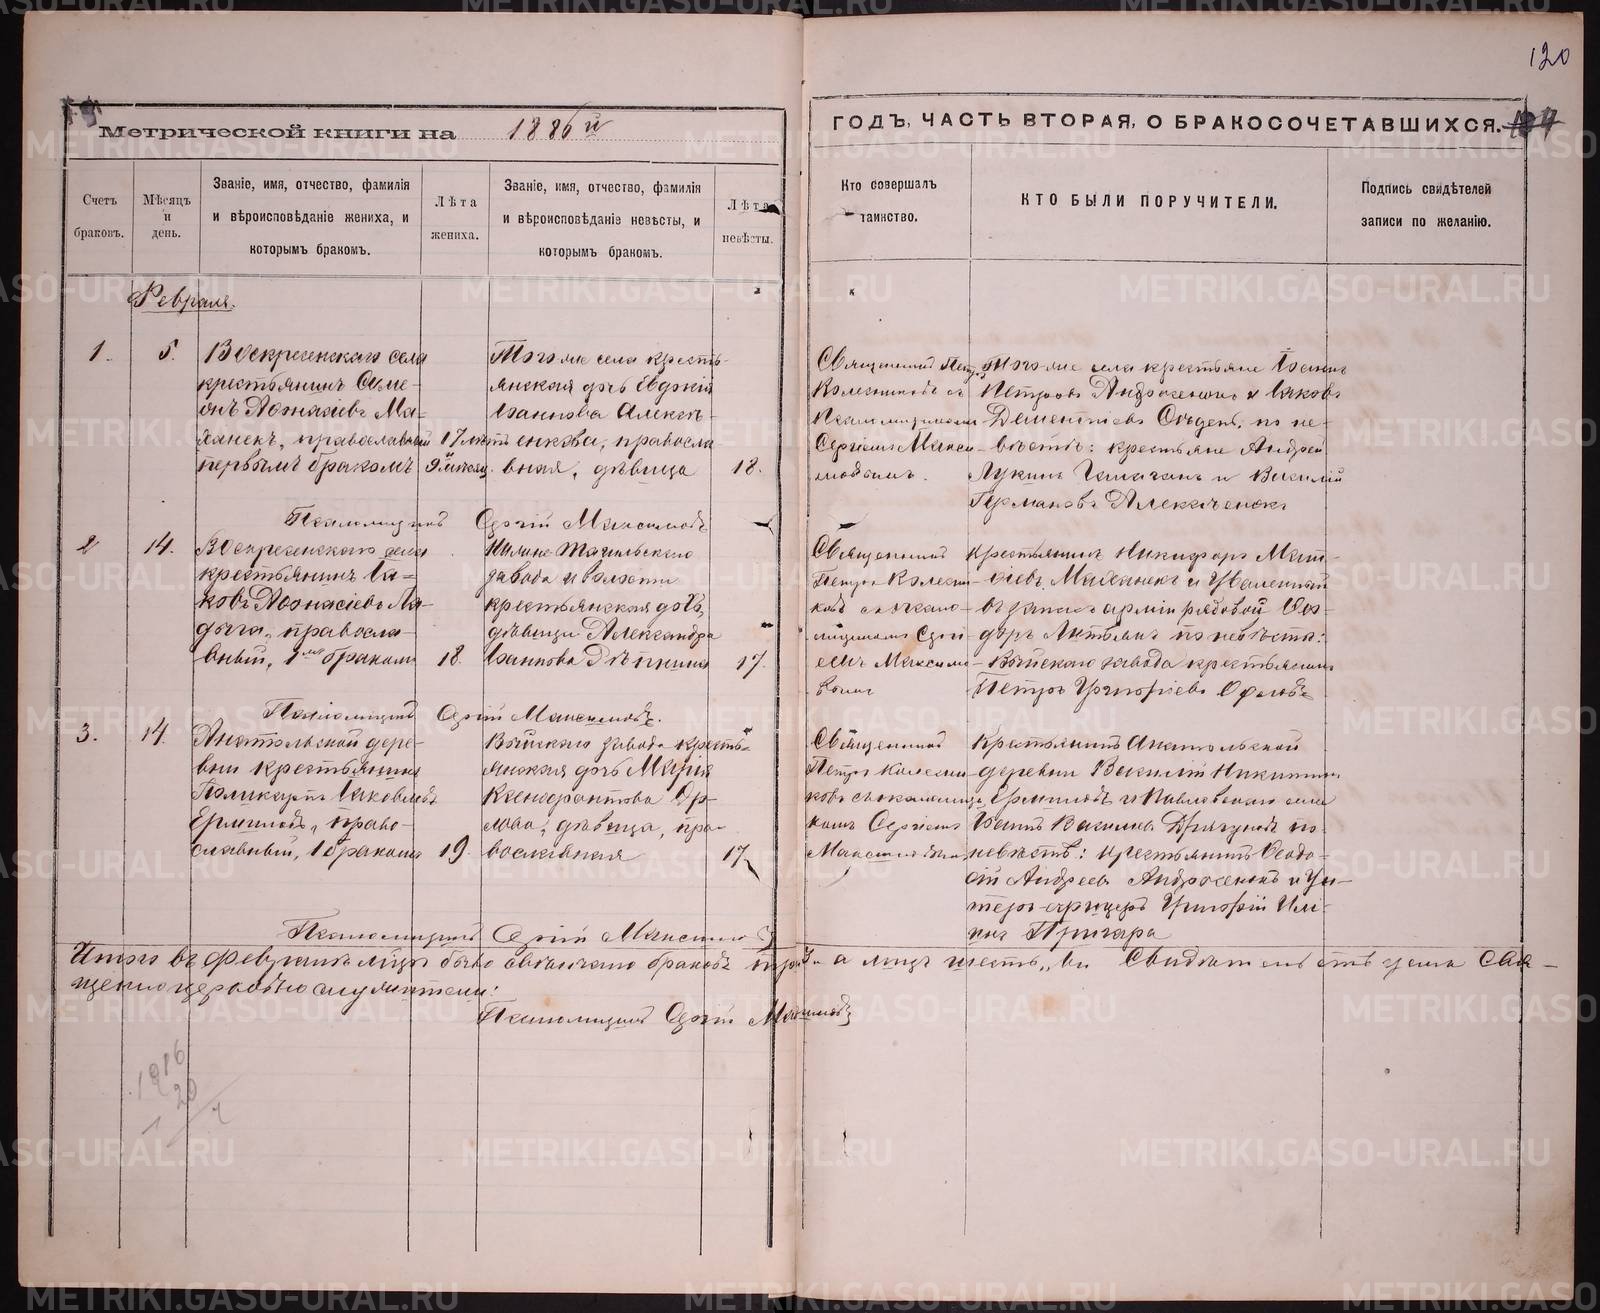 120
Метрической книги на 1886й
ГОДЪ, ЧАСТЬ ВТОРАЯ, О БРАКОСОЧЕТАВШИХСЯ.
Счетъ браковъ.
Мѣсяцъ и день.
Званіе, имя, отчество, фамилія
и вѣроисповѣданіе жениха, и
которымъ бракомъ.
Лѣта
жениха.
Званіе, имя, отчество, фамилія
и вѣроисповѣданіе невѣсты, и
которымъ бракомъ.
Лѣта
невѣсты.
Кто совершалъ
таинство.
КТО БЫЛИ ПОРУЧИТЕЛИ.
Подпись свидѣтелей
записи по желанію.
Февраля.
1.
5.
Воскресенскаго села
крестьянинъ Симе-
онъ Афанасіевъ Ма-
ханекъ, православный
первымъ бракомъ
17 лѣтъ
9 й мѣсяц.
Того же села кресть-
янская дочь Евдокія
Іоаннова Алексѣ-
енкова, правосла
вная, дѣвица
18.
Священникъ Петръ
Колесниковъ съ
псаломщикомъ
Сергіемъ Макси
мовымъ.
Того же села крестьяне Іоаннъ
Петровъ Андросенко и Іаковъ
Дементіевъ по не-
вѣстѣ: крестьяне Андрей
Лукинъ и Василій
Германовъ
Псаломщикъ Сергій Максимовъ
2
14.
Воскресенскаго села
крестьянинъ Іа-
ковъ Афанасіевъ Ла-
дыга, правосла-
вный, 1мъ бракомъ
18.
Нижне Тагильскаго
завода и волости
крестьянская дочь,
дѣвица Александра
Іоаннова
17.
Священникъ
Петръ Колесни
ковъ съ псало-
мщикомъ Сергі
емъ Максимо
вымъ
Крестьянинъ Никифоръ Мат-
ѳіевъ Маханекъ и Уволенный
въ запасъ арміи рядовой Ѳео-
доръ Литвинъ по невѣстѣ:
Выйскаго завода крестьянинъ
Петръ Григоріевъ
Псаломщикъ Сергій Максимовъ.
3.
14.
Анатольской дере-
вни крестьянинъ
Поликарпъ Іаковлевъ
Ермиловъ, право-
славный, 1 бракомъ
19.
Выйскаго завода кресть-
янская дочь Марія
Ксенофонтова Ор-
лова, дѣвица, пра-
вославная
17
Священникъ
Петръ Колесни
ковъ съ псаломщи
комъ Сергіемъ
Максимовымъ
Крестьянинъ Анатольской
деревни Василій Никитинъ
Ермиловъ и Павловскаго села
Іоаннъ Васильевъ по
невѣстѣ: крестьянинъ Ѳеодо-
сій Андреевъ Андросенко и Ун-
теръ-офицеръ Григорій Илі-
инъ
Псаломщикъ Сергій Максимовъ
Итого въ февралѣ мѣсяцѣ было обвѣнчано браковъ три 3. а лицъ шесть въ свидѣтельствуемъ свя-
щенноцерковно служители:
Псаломщикъ Сергій Максимовъ